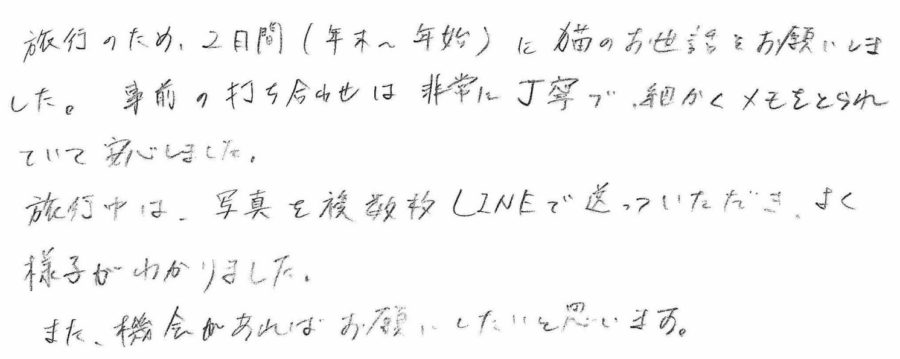 旅行のため、2日間(年末～年始)に猫のお世話をお願いしま
した。事前の打ち合わせは非常に丁寧で、細かくメモをとられ
ていて安心しました。
旅行中は、写真を複数枚LINEで送っていただき、よく
様子がわかりました。
また、機会があればお願いしたいと思います。